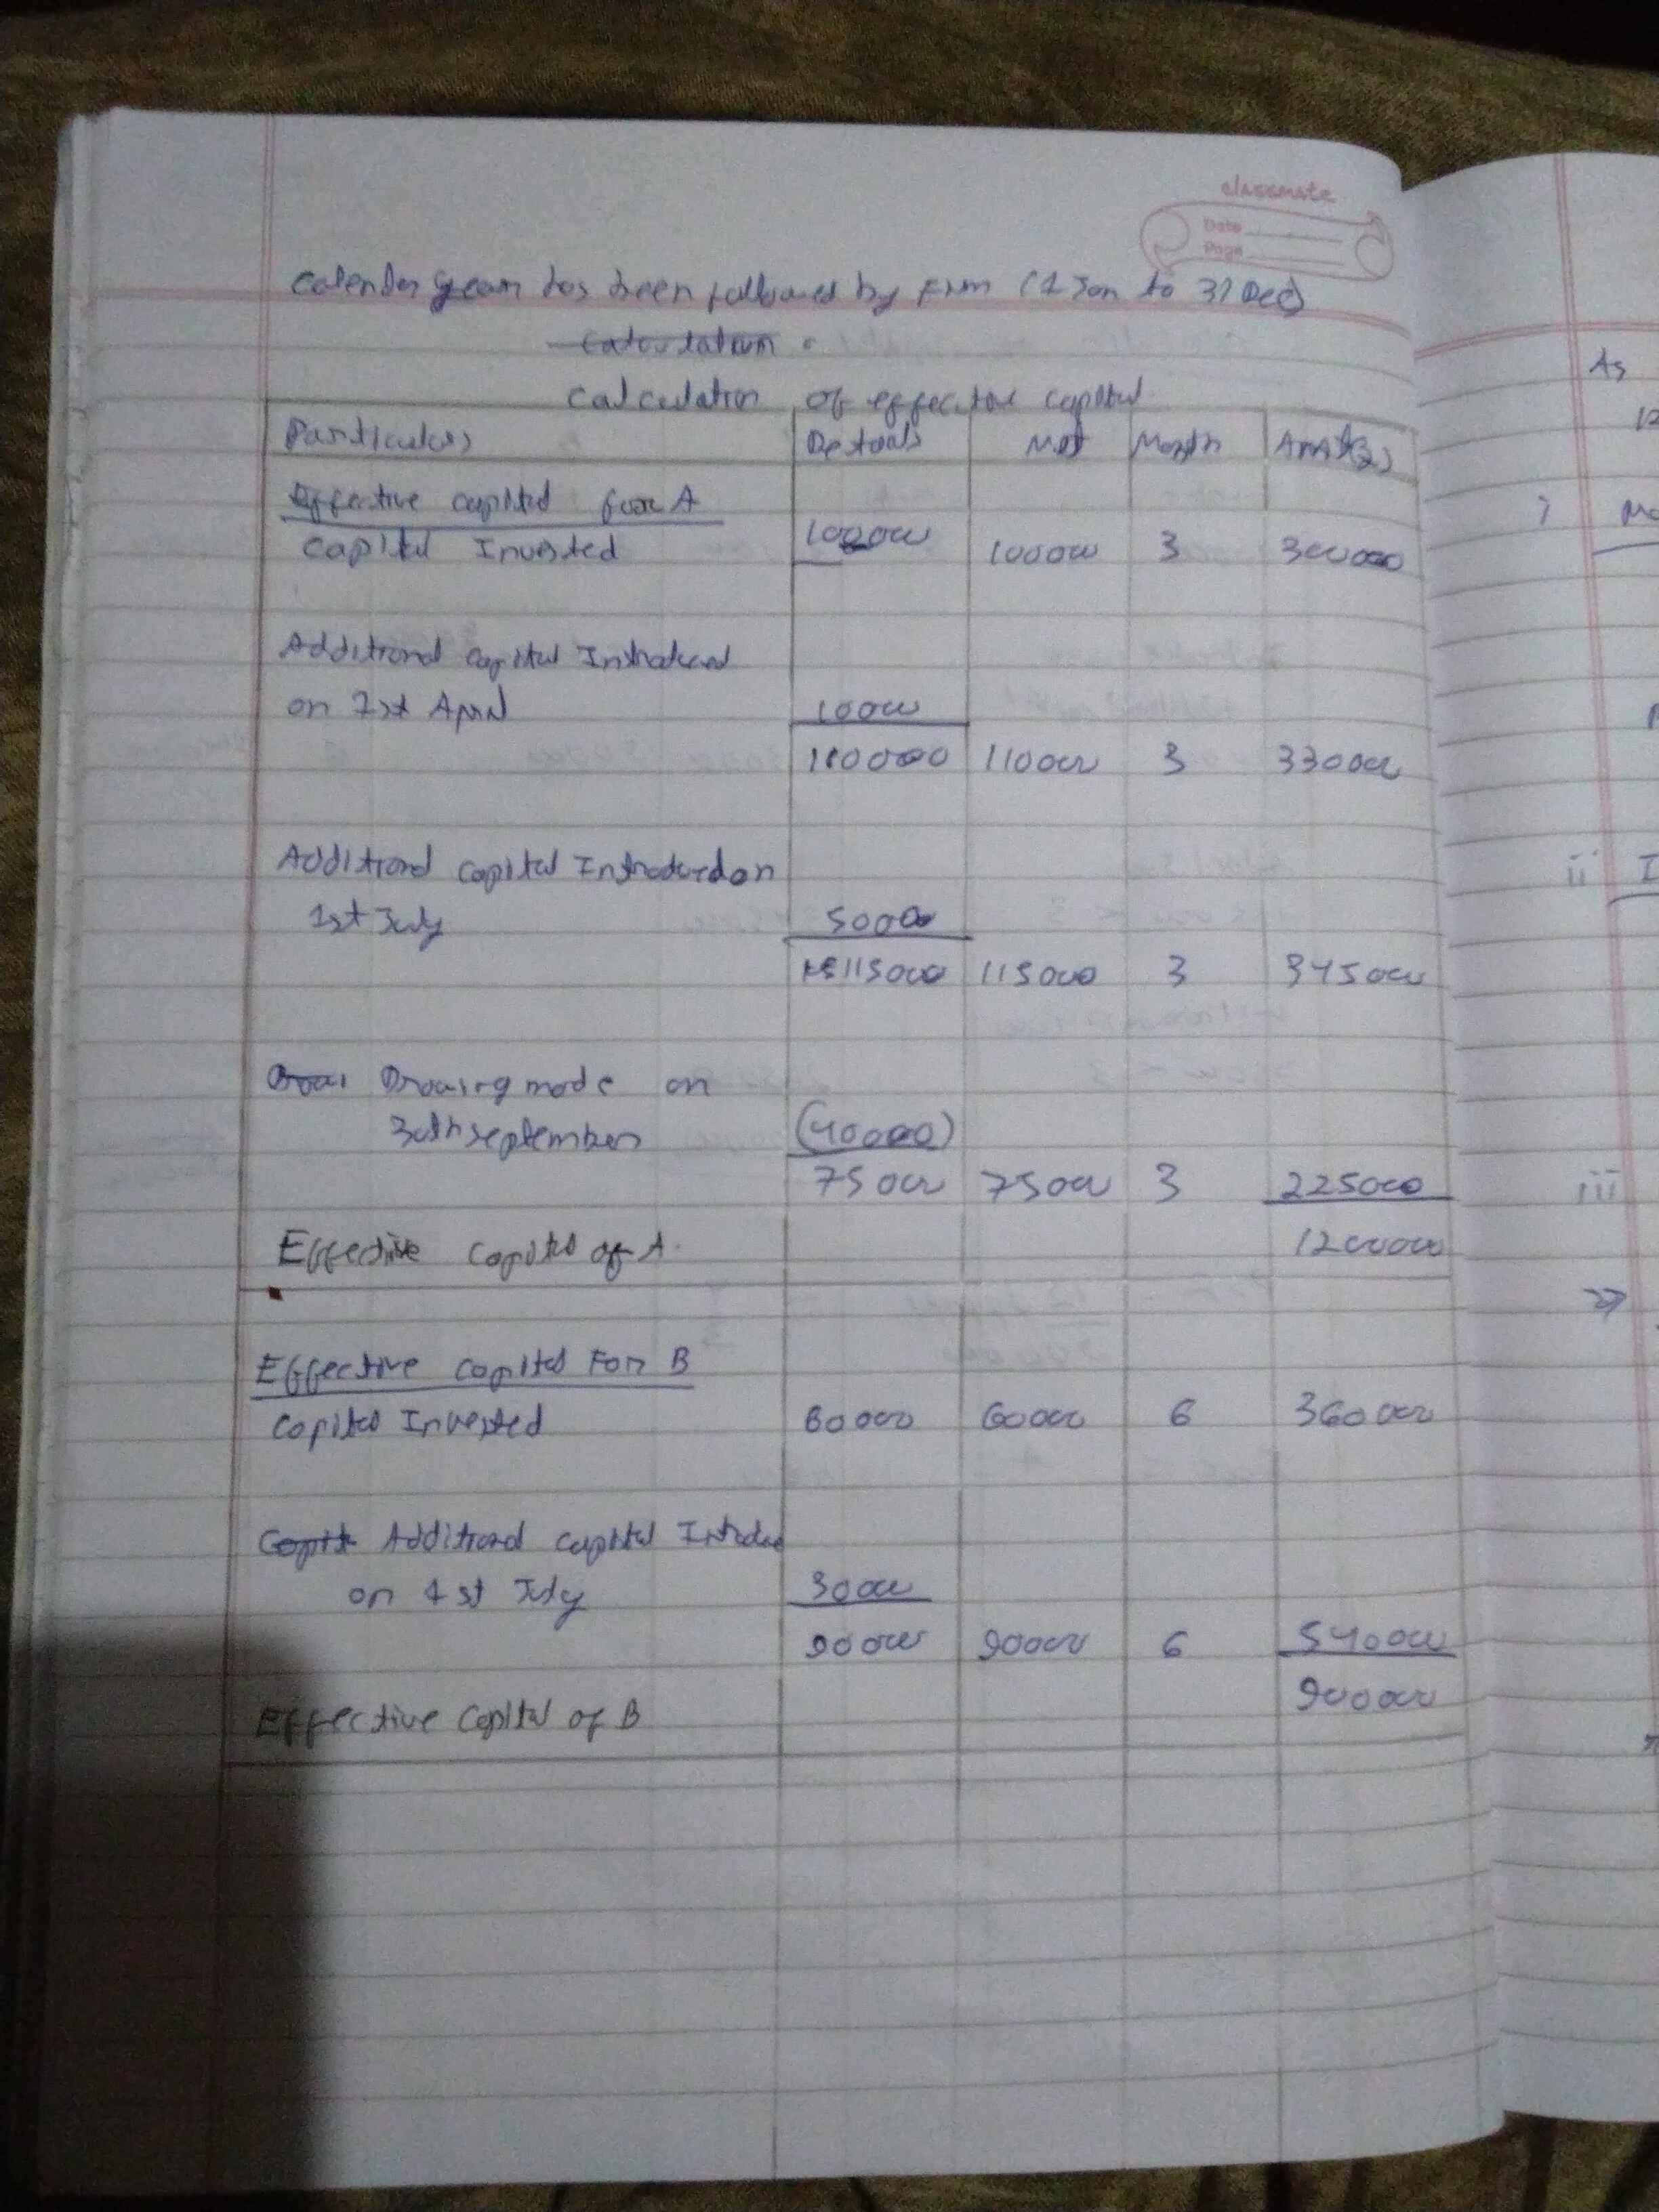 classmate
Date
Page
Calender year has been followed by Firm (1 Jan to 31 Dec)
Calculation
Calculation of effective capital
Particulars Details Month Amt(₹)
Effective capital for A
Capital Invested 100000 100000 3 300000
Additional capital Introduced
on 1st April 10000
110000 110000 3 330000
Additional capital Introduced on
1st July 5000
115000 115000 3 345000
Drawing made on
30th September (40000)
75000 75000 3 225000
Effective Capital of A 1200000
Effective Capital For B
Capital Invested 60000 60000 6 360000
Additional capital Introduc
on 1st July 30000
90000 90000 6 540000
900000
Effective Capital of B
As
12
i
ii I
iii